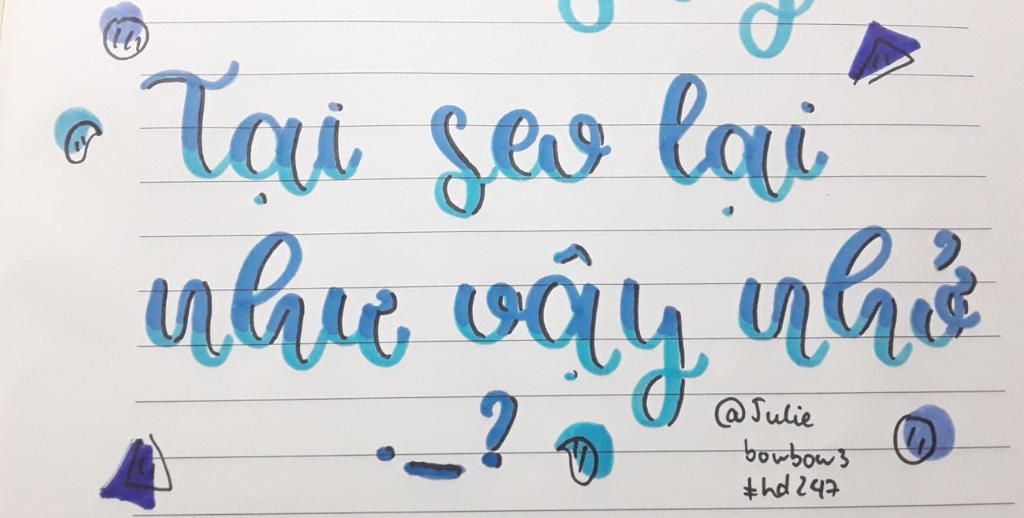 Tại sev lại
như vậy nhở
._?
@Julie
bowbow3
#hd247